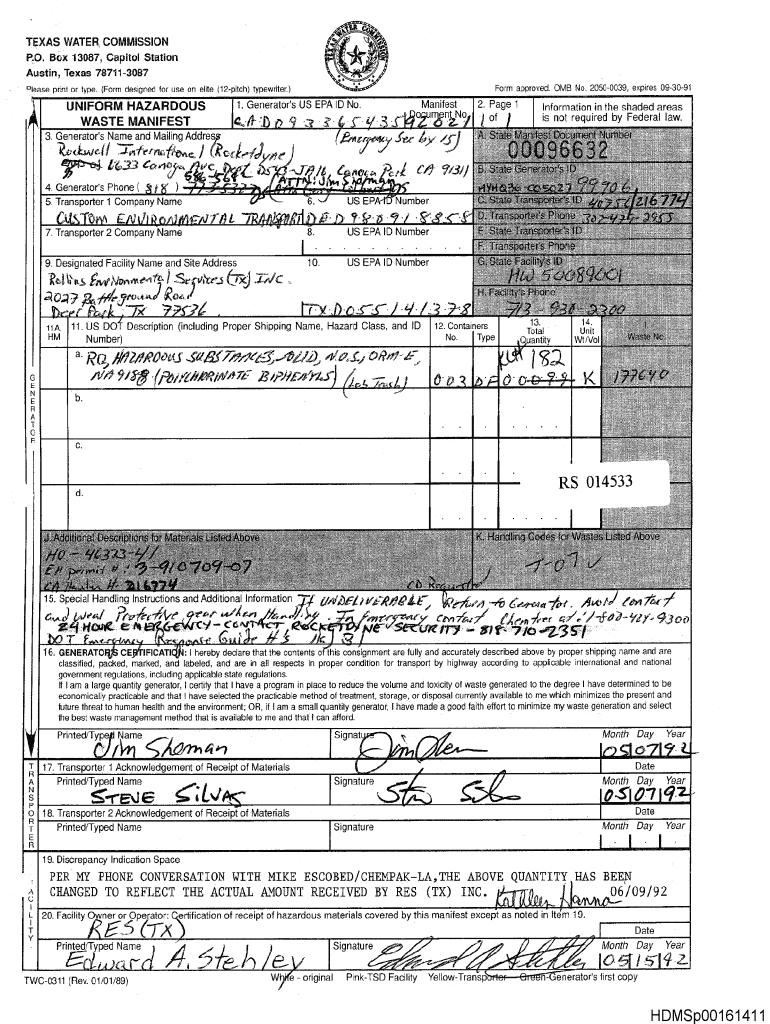 TEXAS WATER COMMISSION
P.O. Box 13087, Capitol Station
Austin, Texas 78711-3087
Please print or type. (Form designed for use on elite (12-pitch) typewriter.) Form approved. OMB No. 2050-0039, expires 09-30-91
UNIFORM HAZARDOUS WASTE MANIFEST
1. Generator's US EPA ID No. Manifest Document No.
CAD093365435 92027
2. Page 1
1 of 1
Information in the shaded areas is not required by Federal law.
3. Generator's Name and Mailing Address (Emergency Sec by 15)
Rockwell International (Rocketdyne)
6633 Canoga Ave, Dept D543-JA16, Canoga Park CA 91311
ATTN: Jim Shoman
4. Generator's Phone (818) 586-5681
A. State Manifest Document Number
00096632
B. State Generator's ID
99906
5. Transporter 1 Company Name 6. US EPA ID Number
CUSTOM ENVIRONMENTAL TRANSPORT DED980918858
C. State Transporter's ID 40756/216774
D. Transporter's Phone 302-475-2955
7. Transporter 2 Company Name 8. US EPA ID Number
E. State Transporter's ID
F. Transporter's Phone
9. Designated Facility Name and Site Address 10. US EPA ID Number
Rollins Environmental Services (TX) INC.
2027 Battleground Road
Deer Park, TX 77536 TXD055141378
G. State Facility's ID
HW 50089001
H. Facility's Phone
713 930 2300
11A. HM
11. US DOT Description (including Proper Shipping Name, Hazard Class, and ID Number)
12. Containers
No. Type
13. Total Quantity
14. Unit Wt/Vol
I. Waste No.
a. RQ, HAZARDOUS SUBSTANCES, SOLID, N.O.S., ORM-E,
NA9188 (POLYCHLORINATE BIPHENYLS) (Lab Trash) 003 DF 182 00099 K 177640
b.
c.
d.
RS 014533
GENERATOR
J. Additional Descriptions for Materials Listed Above
HO - 46323-41
EH permit #: 3-910709-07
216774
K. Handling Codes for Wastes Listed Above
T-07
15. Special Handling Instructions and Additional Information If UNDELIVERABLE, Return to Generator. Avoid contact
and wear Protective gear when Handling In Emergency contact Chemtrec at: 1-800-424-9300
24 HOUR EMERGENCY-CONTACT ROCKETDYNE SECURITY-818-710-2351
DOT Emergency Response Guide #'s 31
16. GENERATOR'S CERTIFICATION: I hereby declare that the contents of this consignment are fully and accurately described above by proper shipping name and are
classified, packed, marked, and labeled, and are in all respects in proper condition for transport by highway according to applicable international and national
government regulations, including applicable state regulations.
If I am a large quantity generator, I certify that I have a program in place to reduce the volume and toxicity of waste generated to the degree I have determined to be
economically practicable and that I have selected the practicable method of treatment, storage, or disposal currently available to me which minimizes the present and
future threat to human health and the environment; OR, if I am a small quantity generator, I have made a good faith effort to minimize my waste generation and select
the best waste management method that is available to me and that I can afford.
Printed/Typed Name Signature Month Day Year
Jim Shoman 05 07 92
17. Transporter 1 Acknowledgement of Receipt of Materials Date
Printed/Typed Name Signature Month Day Year
STEVE SILVAS 05 07 92
18. Transporter 2 Acknowledgement of Receipt of Materials Date
Printed/Typed Name Signature Month Day Year
TRANSPORTER
19. Discrepancy Indication Space
PER MY PHONE CONVERSATION WITH MIKE ESCOBED/CHEMPAK-LA,THE ABOVE QUANTITY HAS BEEN
CHANGED TO REFLECT THE ACTUAL AMOUNT RECEIVED BY RES (TX) INC. Kathleen Hanna 06/09/92
20. Facility Owner or Operator: Certification of receipt of hazardous materials covered by this manifest except as noted in Item 19.
RES(TX) Date
Printed/Typed Name Signature Month Day Year
Edward A. Stehley Edward A Stehley 05 15 92
FACILITY
TWC-0311 (Rev. 01/01/89) White - original Pink-TSD Facility Yellow-Transporter Green-Generator's first copy
HDMSp00161411